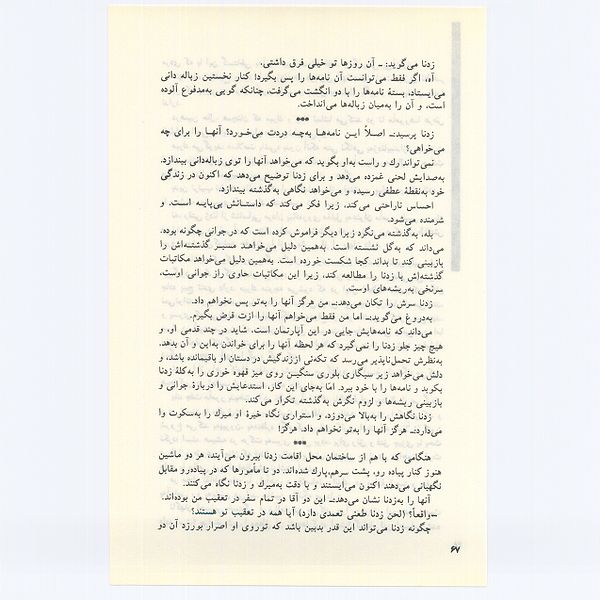 زدنا می‌گوید: ـ آن روزها تو خیلی فرق داشتی.
آه، اگر فقط می‌توانست آن نامه‌ها را پس بگیرد؛ کنار نخستین زباله دانی
می‌ایستاد، بستهٔ نامه‌ها را با دو انگشت می‌گرفت، چنانکه گویی به‌مدفوع آلوده
است، و آن را به‌میان زباله‌ها می‌انداخت.
***
زدنا پرسید:ـ اصلاً این نامه‌ها به‌چه دردت می‌خورد؟ آنها را برای چه
می‌خواهی؟
نمی‌تواند رك و راست به‌او بگوید که می‌خواهد آنها را توی زباله‌دانی بیندازد.
به‌صدایش لحنی غمزده می‌دهد و برای زدنا توضیح می‌دهد که اکنون در زندگی
خود به‌نقطهٔ عطفی رسیده و می‌خواهد نگاهی به‌گذشته بیندازد.
احساس ناراحتی می‌کند، زیرا فکر می‌کند که داستانش بی‌پایه است. و
شرمنده می‌شود.
بله، به‌گذشته می‌نگرد زیرا دیگر فراموش کرده است که در جوانی چگونه بوده.
می‌داند که به‌گل نشسته است. به‌همین دلیل می‌خواهد مسیر گذشته‌اش را
بازبینی کند تا بداند کجا شکست خورده است. به‌همین دلیل می‌خواهد مکاتبات
گذشته‌اش با زدنا را مطالعه کند، زیرا این مکاتبات حاوی راز جوانی اوست،
سرنخی به‌ریشه‌های اوست.
زدنا سرش را تکان می‌دهد:ـ من هرگز آنها را به‌تو پس نخواهم داد.
به‌دروغ می‌گوید:ـ اما من فقط می‌خواهم آنها را ازت قرض بگیرم.
می‌داند که نامه‌هایش جایی در این آپارتمان است، شاید در چند قدمی او، و
هیچ چیز جلو زدنا را نمی‌گیرد که هر لحظه آنها را برای خواندن به‌این و آن بدهد.
به‌نظرش تحمل‌ناپذیر می‌رسد که تکه‌ئی اززندگیش در دستان او باقیمانده باشد، و
دلش می‌خواهد زیر سیگاری بلوری سنگین روی میز قهوه خوری را به‌کلهٔ زدنا
بکوبد و نامه‌ها را با خود ببرد. امّا به‌جای این کار، استدعایش را دربارهٔ جوانی و
بازبینی ریشه‌ها و لزوم نگرش به‌گذشته تکرار می‌کند.
زدنا نگاهش را به‌بالا می‌دوزد، و استواری نگاه خیرهٔ او میرك را به‌سکوت وا
می‌دارد:ـ هرگز آنها را به‌تو نخواهم داد. هرگز!
***
هنگامی که با هم از ساختمان محل اقامت زدنا بیرون می‌آیند، هر دو ماشین
هنوز کنار پیاده رو، پشت سرهم،پارك شده‌اند. دو تا مأمورها که در پیاده‌رو مقابل
نگهبانی می‌دهند اکنون می‌ایستند و با دقت به‌میرك و زدنا نگاه می‌کنند.
آنها را به‌زدنا نشان می‌دهد:ـ این دو آقا در تمام سفر در تعقیب من بوده‌اند.
ـواقعاً؟ (لحن زدنا طعنی تعمدی دارد) آیا همه در تعقیب تو هستند؟
چگونه زدنا می‌تواند این قدر بدبین باشد که توروی او اصرار بورزد آن دو
۶۷